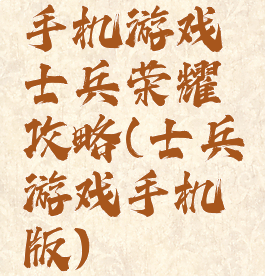 手机游戏
士兵荣耀
攻略(士兵
游戏手机
版)